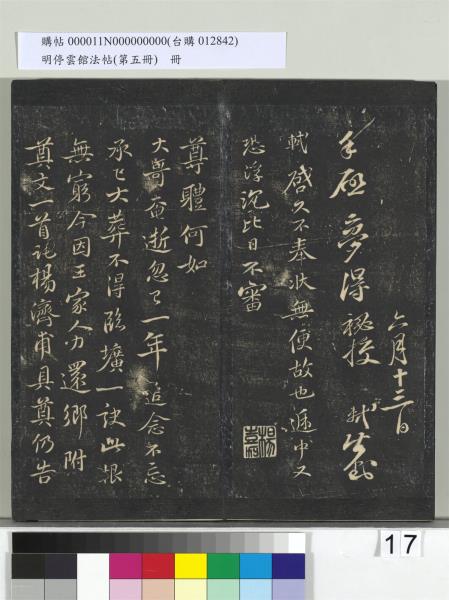 購帖 000011N000000000(台購 012842)
明停雲館法帖(第五冊)　冊
六月十三日　軾
手啟夢得秘校
軾啓久不奉狀無便故也遞中又
恐浮沉比日不審
尊體何如
大哥奄逝忽已一年追念不忘
承已大葬不得臨壙一訣此恨
無窮今因王家人力還鄉附
奠文一首託楊濟甫具奠仍告
17